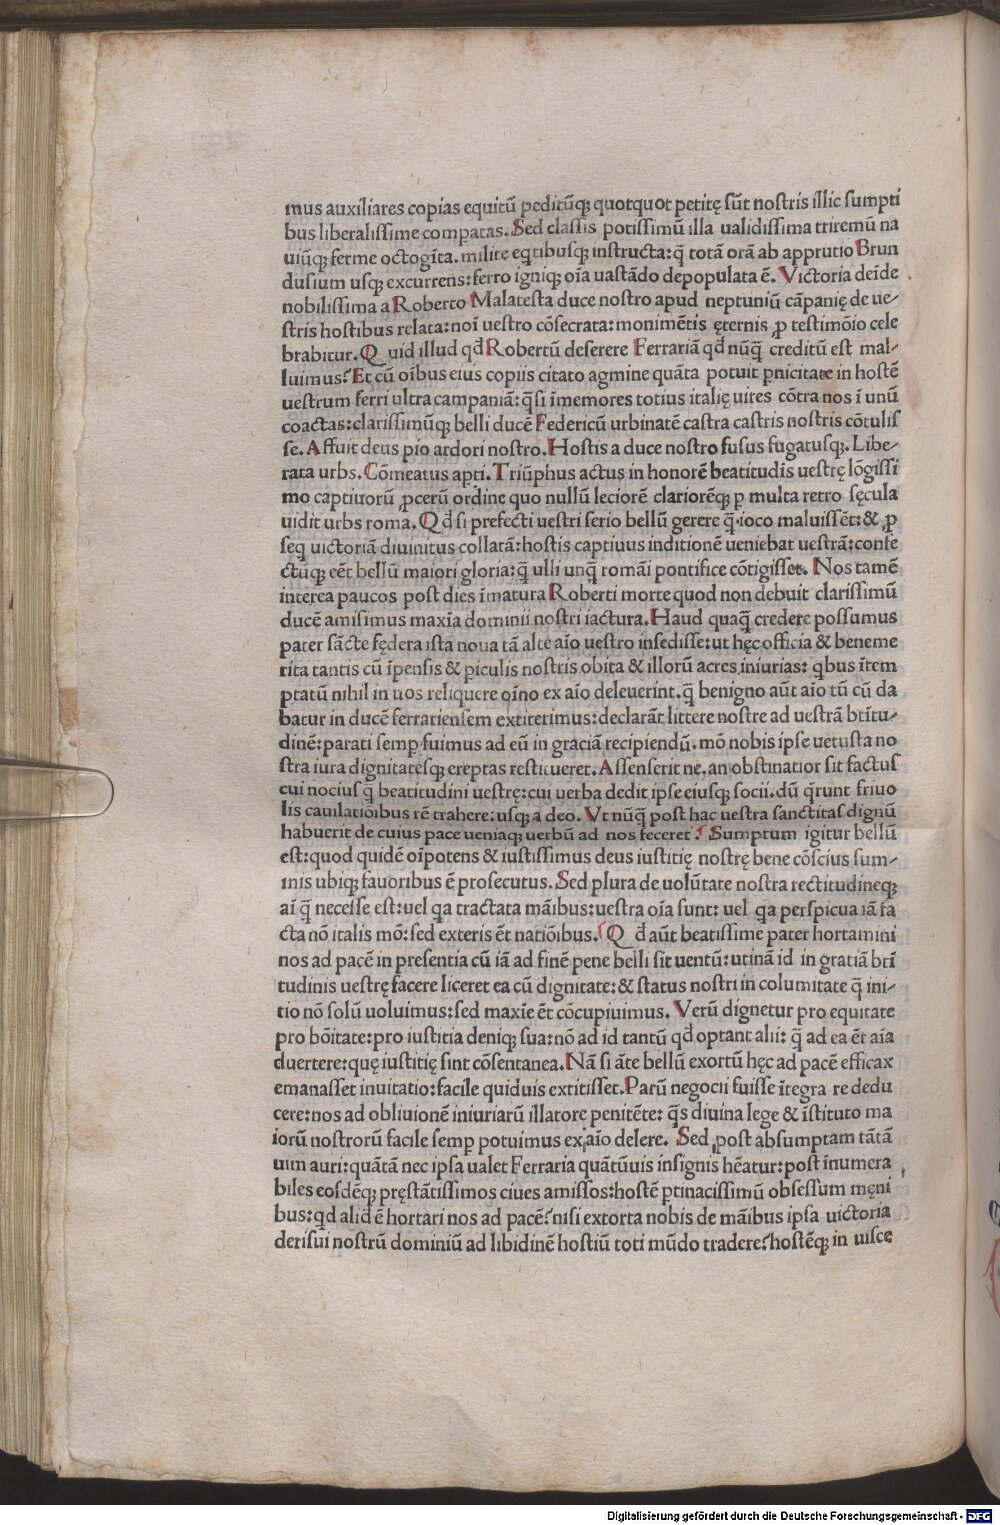 mus auxiliares copias equitū peditūqꝫ quotquot petitę sūt nostris illic sumpti
bus liberalissime comparatas. Sed classis potissimū illa ualidissima triremū na
uiūqꝫ ferme octogīta. milite eqtibusqꝫ instructa: q̄ totā orā ab apprutio Brun
dusium usqꝫ excurrens: ferro igniqꝫ oīa uastādo depopulata ē. Victoria deīde
nobilissima a Roberto Malatesta duce nostro apud neptuniū cāpanię de ue/
stris hostibus relata: noī uestro cōsecrata: monimētis ęternis ꝓ testimōio cele
brabitur. Quid illud qđ Robertū deserere Ferrariā qđ nūq̄ creditū est mal/
luimus? Et cū oībus eius copiis citato agmine quāta potuit ꝑnicitate in hostē
uestrum ferri ultra campaniā: q̄si īmemores totius italię uires cōtra nos ī unū
coactas: clarissimūqꝫ belli ducē Federicū urbinatē castra castris nostris cōtulis
se. Affuit deus pio ardori nostro. Hostis a duce nostro fusus fugatusqꝫ. Libe/
rata urbs. Cōmeatus apti. Triūphus actus in honorē beatitudis uestrę lōgissi
mo captiuorū ꝓcerū ordine quo nullū leciorē clariorēqꝫ ꝑ multa retro sęcula
uidit urbs roma. Qđ si prefecti uestri serio bellū gerere q̄ ioco maluissēt: & ꝓ
seq uictoriā diuinitus collatā: hostis captiuus inditionē ueniebat uestrā: confe
ctūqꝫ eēt bellū maiori gloria: q̄ ulli unq̄ romāi pontifice cōtigisset. Nos tamē
interea paucos post dies īmatura Roberti morte quod non debuit clarissimū
ducē amisimus maxīa dominii nostri iactura. Haud quaq̄ credere possumus
pater sācte fędera ista noua tā alte aīo uestro insedisse: ut hęc officia & beneme
rita tantis cū īpensis & ꝑiculis nostris obita & illorū acres iniurias: qbus ītem
ptatū nihil in uos reliquere oīno ex aīo deleuerint. q̄ benigno aūt aīo tū cū da
batur in ducē ferrariensem extiterimus: declarāt littere nostre ad uestrā btītu/
dinē: parati semꝑ fuimus ad eū in graciā recipiendū. mō nobis ipse uetusta no
stra iura dignitatesqꝫ ereptas restitueret. Assenserit ne. an obstinatior sit factus
cui nocius q̄ beatitudini uestrę: cui uerba dedit ipse eiusqꝫ socii. dū qrunt friuo
lis cauilatioībus rē trahere: usqꝫ a deo. Vt nūq̄ post hac uestra sanctitas dignū
habuerit de cuius pace ueniaqꝫ uerbū ad nos feceret? Sumptum igitur bellū
est: quod quidē oīpotens & iustissimus deus iustitię nostrę bene cōscius sum/
mis ubiqꝫ fauoribus ē prosecutus. Sed plura de uolūtate nostra rectitudineqꝫ
aī q̄ necesse est: uel qa tractata māibus: uestra oīa sunt: uel qa perspicua iā fa
cta nō italis mō: sed exteris ēt natiōibus. Qđ aūt beatissime pater hortamini
nos ad pacē in presentia cū iā ad finē pene belli sit uentū: utinā id in gratiā btī
tudinis uestrę facere liceret ea cū dignitate: & status nostri in columitate q̄ ini/
tio nō solū uoluimus: sed maxīe ēt cōcupiuimus. Verū dignetur pro equitate
pro bōitate: pro iustitia deniqꝫ sua: nō ad id tantū qđ optant alii: q̄ ad ea ēt aīa
duertere: quę iustitię sint cōsentanea. Nā si āte bellū exortū hęc ad pacē efficax
emanasset inuitatio: facile quiduis extitisset. Parū negocii fuisse ītegra re dedu
cere: nos ad obliuionē iniuriarū illatore penitēte: q̄s diuina lege & īstituto ma
iorū nostrorū facile semꝑ potuimus ex aīo delere. Sed post absumptam tātā
uim auri: quātā nec ipsa ualet Ferraria quātūuis insignis hēatur: post īnumera
biles eosdēqꝫ pręstātissimos ciues amissos: hostē ꝑtinacissimū obsessum męni
bus: qd alid ē hortari nos ad pacē? nisi extorta nobis de māibus ipsa uictoria
derisui nostrū dominiū ad libidinē hostiū toti mūdo tradere? hostēqꝫ in uisce
Digitalisierung gefördert durch die Deutsche Forschungsgemeinschaft - DFG